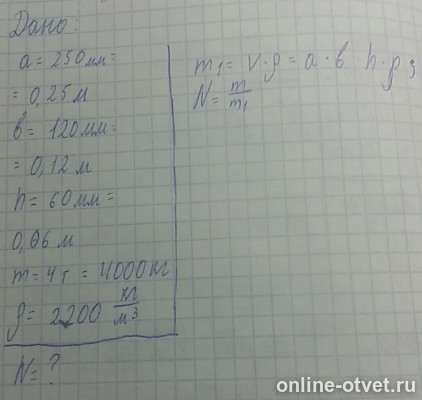 Дано:
a = 250 мм =
= 0,25 м
в = 120 мм =
= 0,12 м
h = 60 мм =
0,06 м
m = 4т = 4000 кг
ρ = 2200 кг/м³
N = ?
m₁ = V · ρ = a · в h · ρ
N = m/m₁
online-otvet.ru